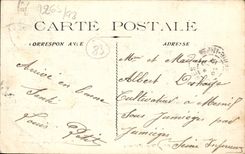 CARTE POSTALE
CORRESPONDANCE
ADRESSE
Arrivé en bonne
Santé
Louis Petit
Mr et Madame
Albert
Cultivateur à Mesnil
sous Jumièges par
Jumièges
Seine Inférieure